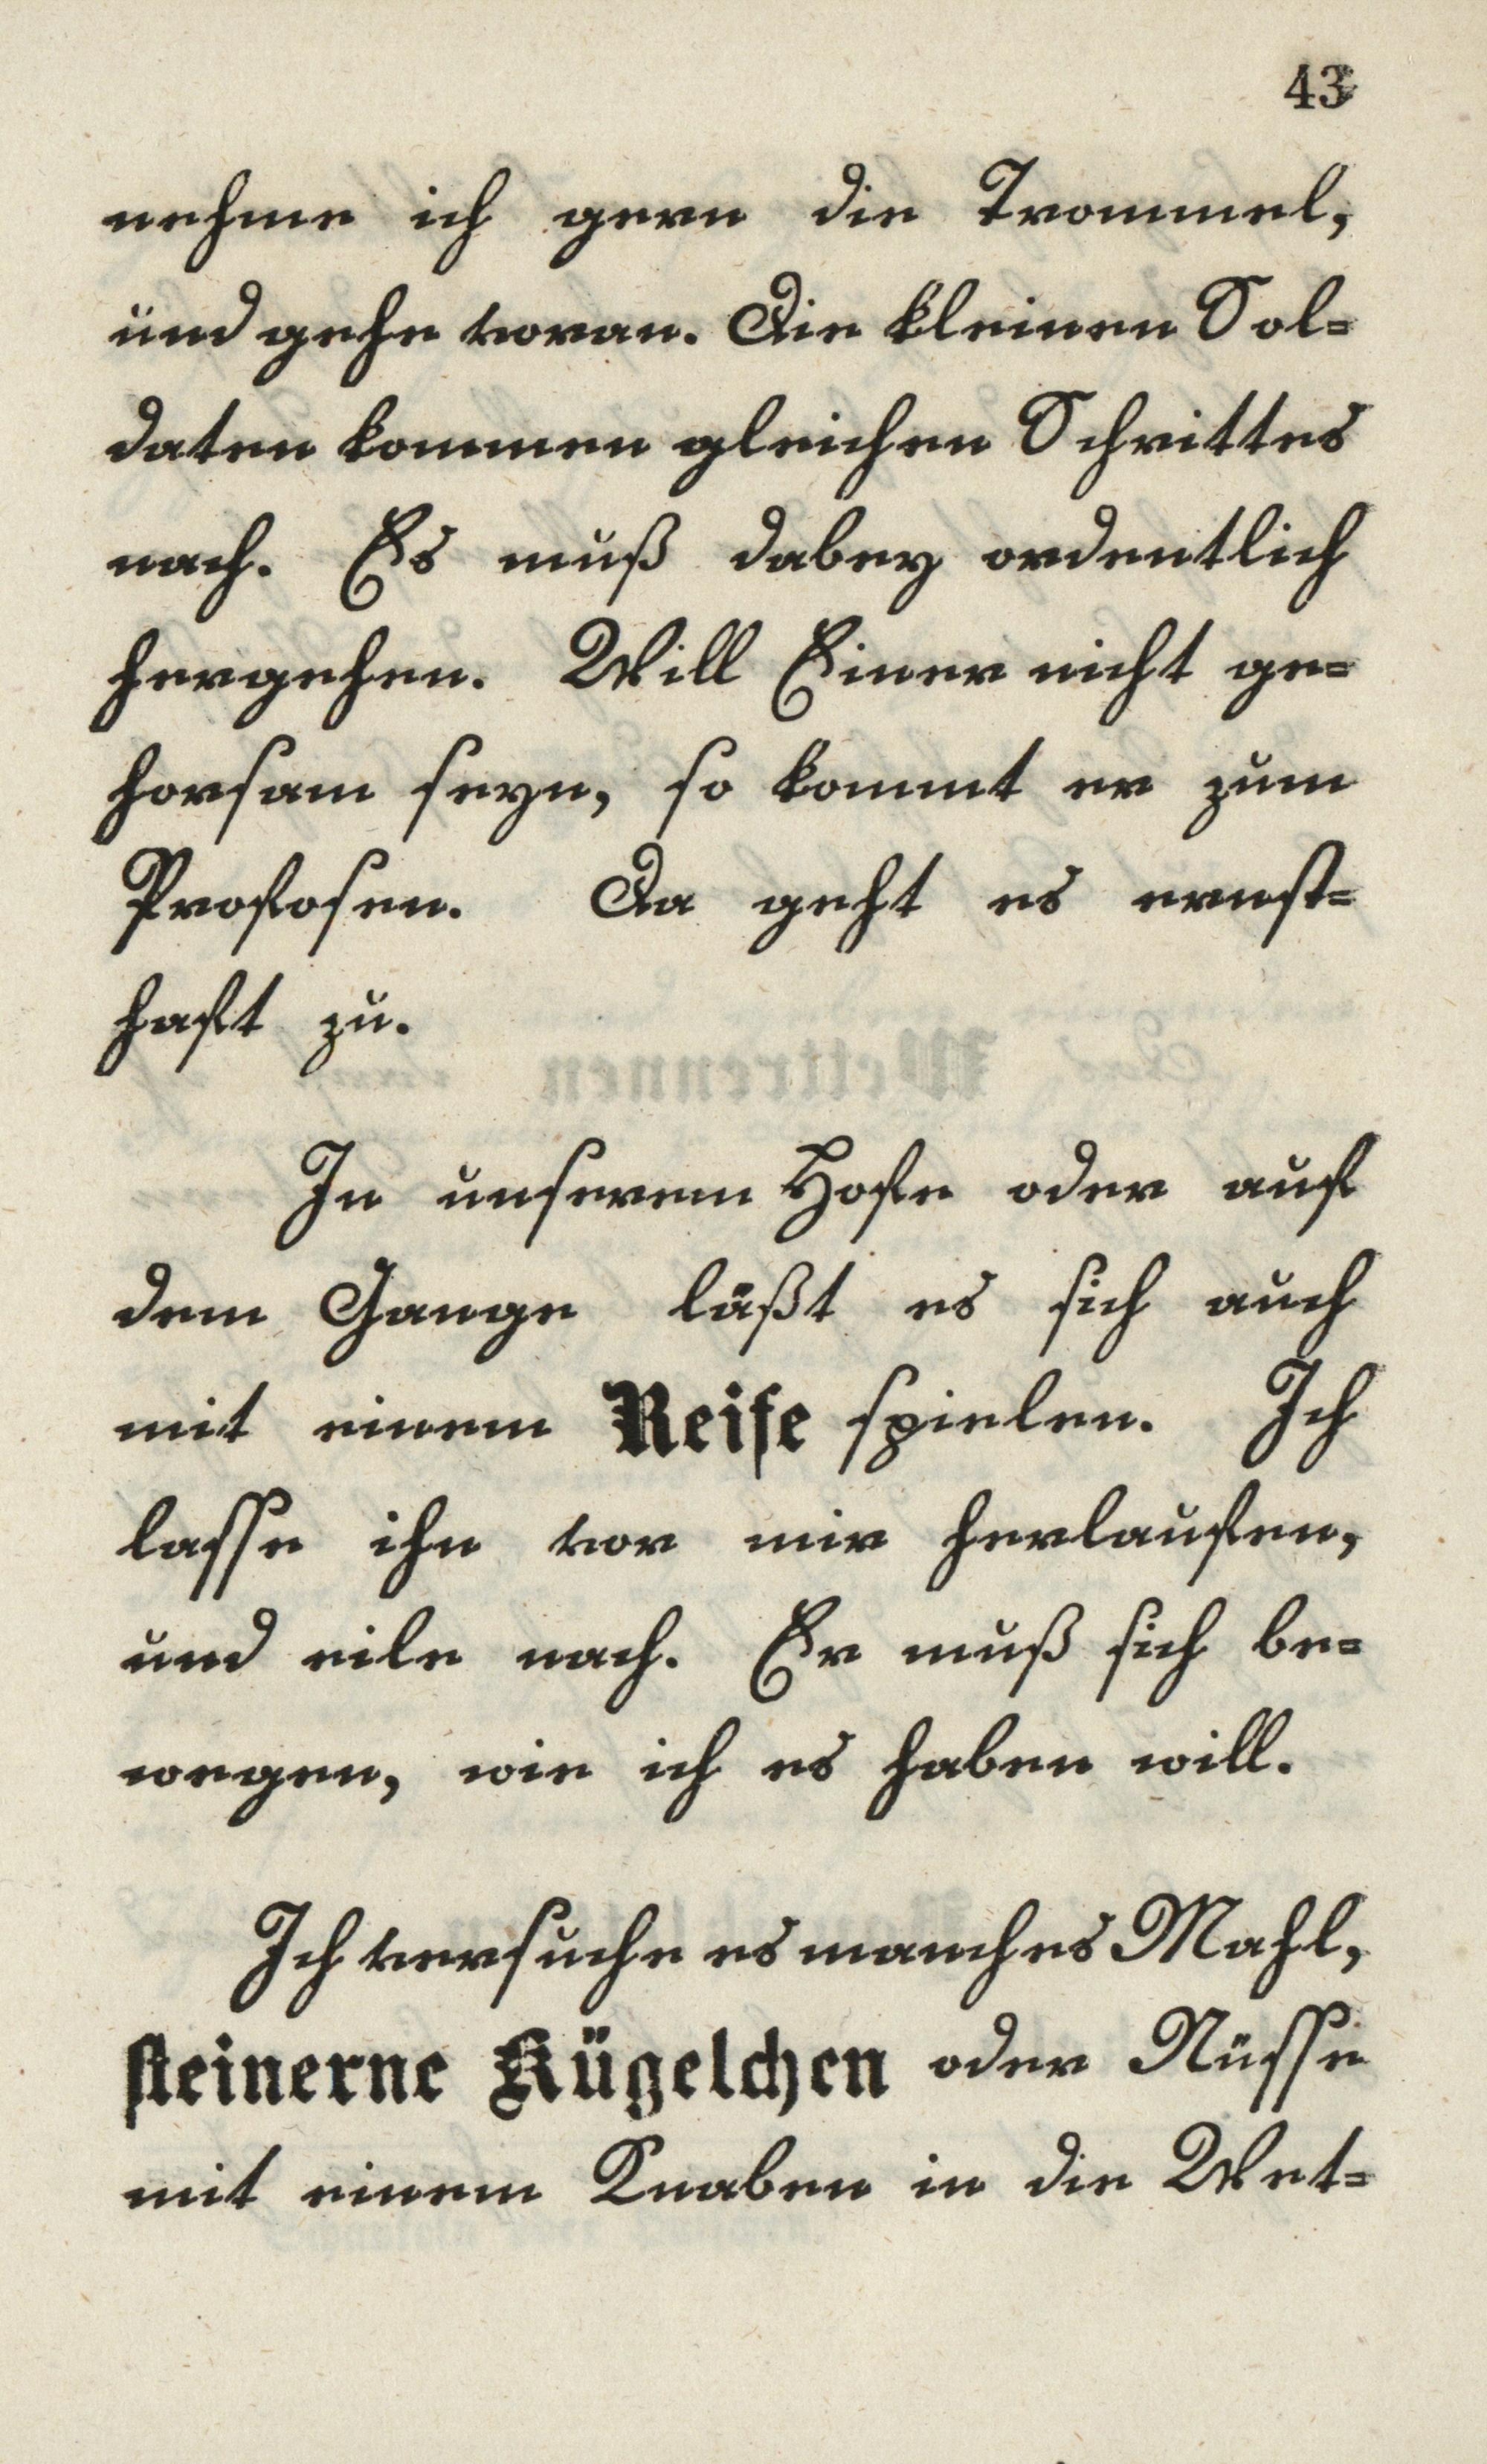 43
nehme ich gern die Trommel,
und gehe voran. Die kleinen Sol-
daten kommen gleichen Schrittes
nach. Es muß dabey ordentlich
hergehen. Will Einer nicht ge-
horsam seyn, so kommt er zum
Profosen. Da geht es ernst-
haft zu.
In unserem Hofe oder auf
dem Gange läßt es sich auch
mit einem Reife spielen. Ich
lasse ihn vor mir herlaufen,
und eile nach. Er muß sich be-
wegen, wie ich es haben will.
Ich versuche es manches Mahl,
steinerne Kügelchen oder Nüsse
mit einem Knaben in die Wet-